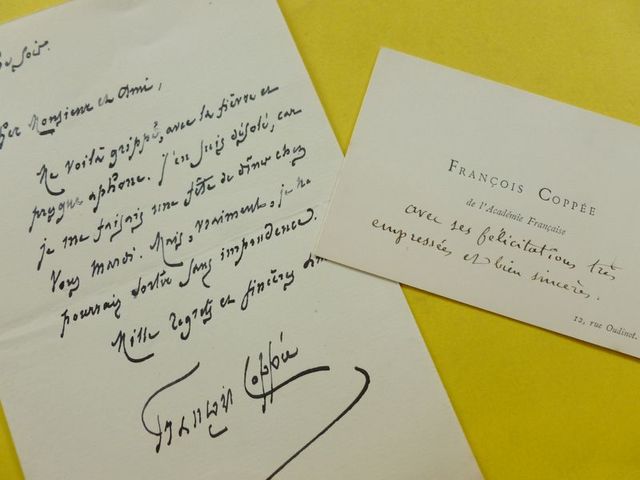 soir.
Monsieur et Ami,
Me voilà grippé, avec la fièvre et
presque aphone. J'en suis désolé, car
je me faisais une fête de dîner chez
vous mardi. Mais, vraiment, je ne
pourrais sortir sans imprudence.
Mille regrets et sincères
François Coppée
FRANÇOIS COPPÉE
de l'Académie Française
avec ses félicitations très
empressées et bien sincères.
12, rue Oudinot.